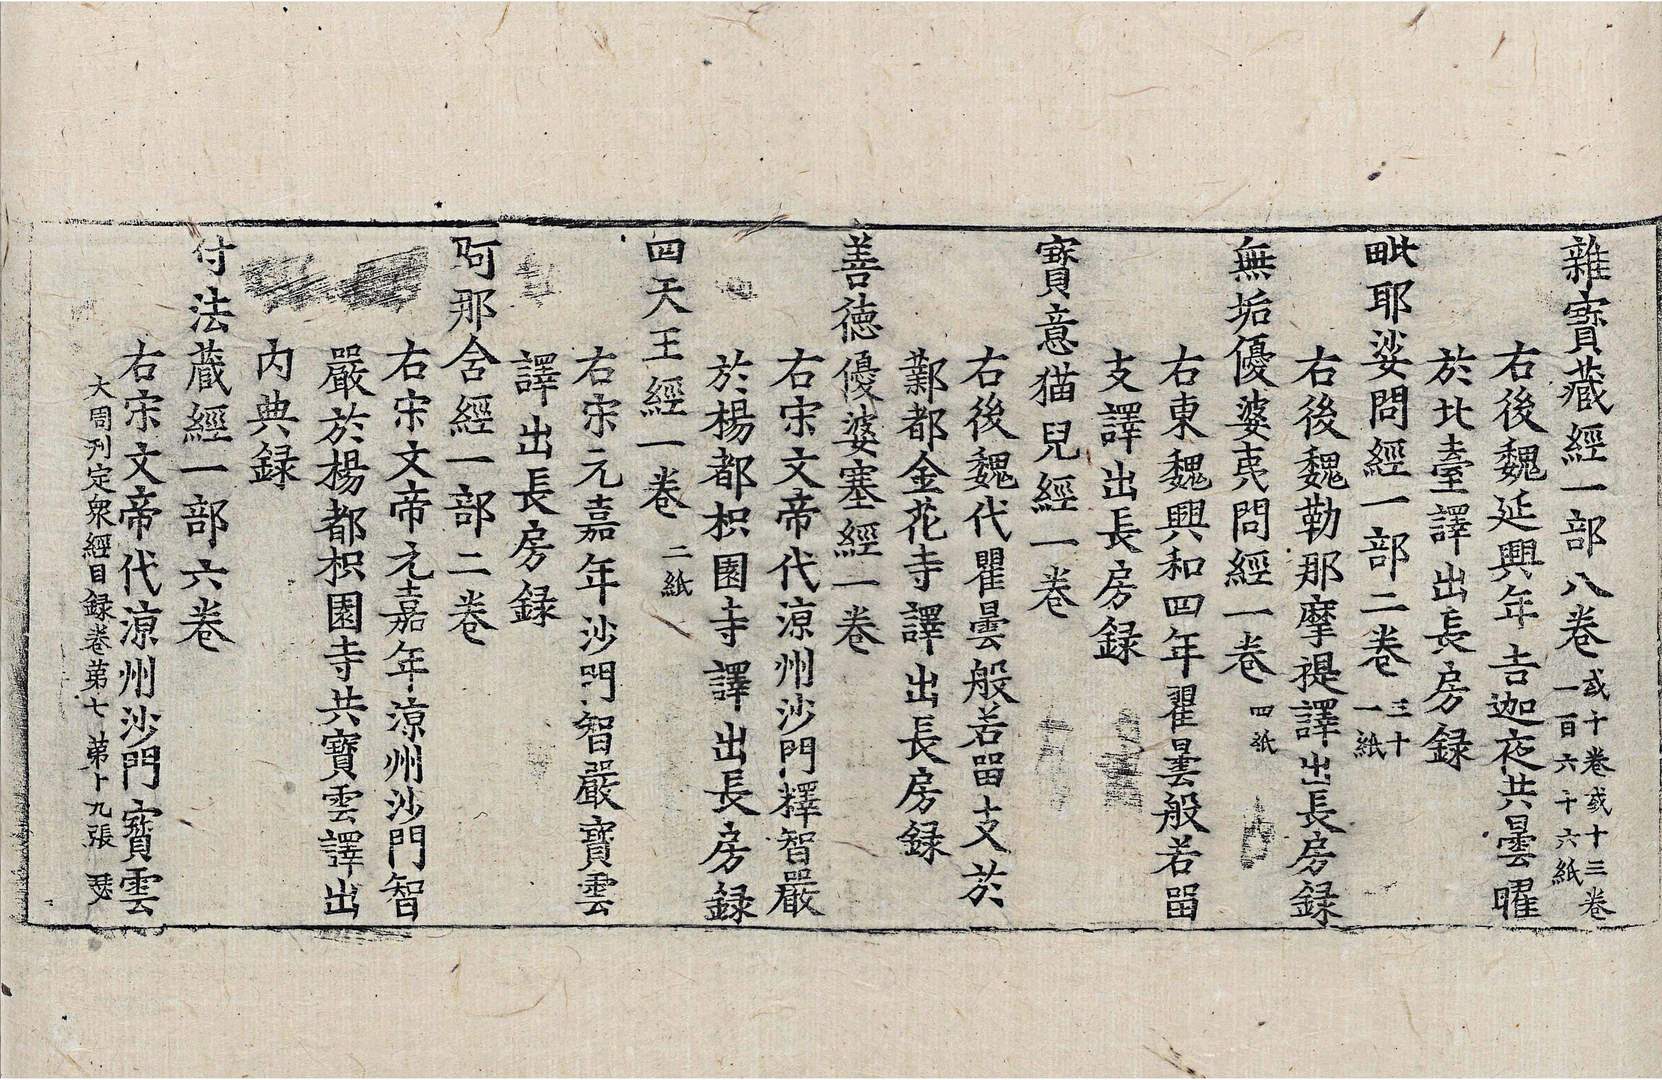 雜寶藏經一部八卷 或十卷或十三卷 一百六十六紙
右後魏延興年吉迦夜共曇曜
於北臺譯出長房録
毗耶娑問經一部二卷 三十一紙
右後魏勒那摩提譯出長房録
無垢優婆夷問經一卷 四紙
右東魏興和四年瞿曇般若留
支譯出長房録
寳意猫兒經一卷
右後魏代瞿曇般若留支於
鄴都金花寺譯出長房録
善德優婆塞經一卷
右宋文帝代涼州沙門釋智嚴
於楊都枳園寺譯出長房録
四天王經一卷 二紙
右宋元嘉年沙門智嚴寳雲
譯出長房録
阿那含經一部二卷
右宋文帝元嘉年涼州沙門智
嚴於楊都枳園寺共寳雲譯出
内典録
付法藏經一部六卷
右宋文帝代涼州沙門寳雲
大周刊定衆經目録卷第七 第十九張